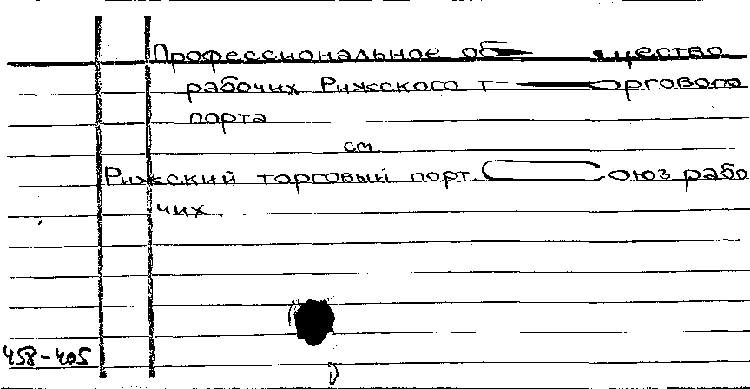 Профессиональное общество
рабочих Рижского торгового
порта
см
Рижский торговый порт. Союз рабо
чих.
458-405